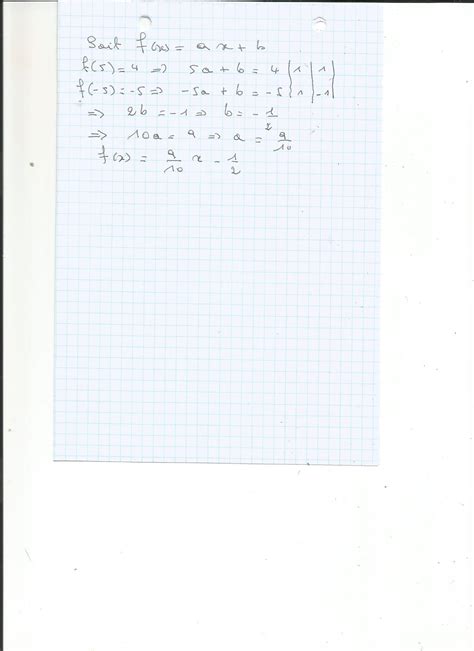 Soit f(x) = ax + b
f(5) = 4 => 5a + b = 4 | 1 | 1 |
f(-5) = -5 => -5a + b = -5 | 1 | -1 |
=> 2b = -1 => b = -1/2
=> 10a = 9 => a = 9/10
f(x) = 9/10 x - 1/2